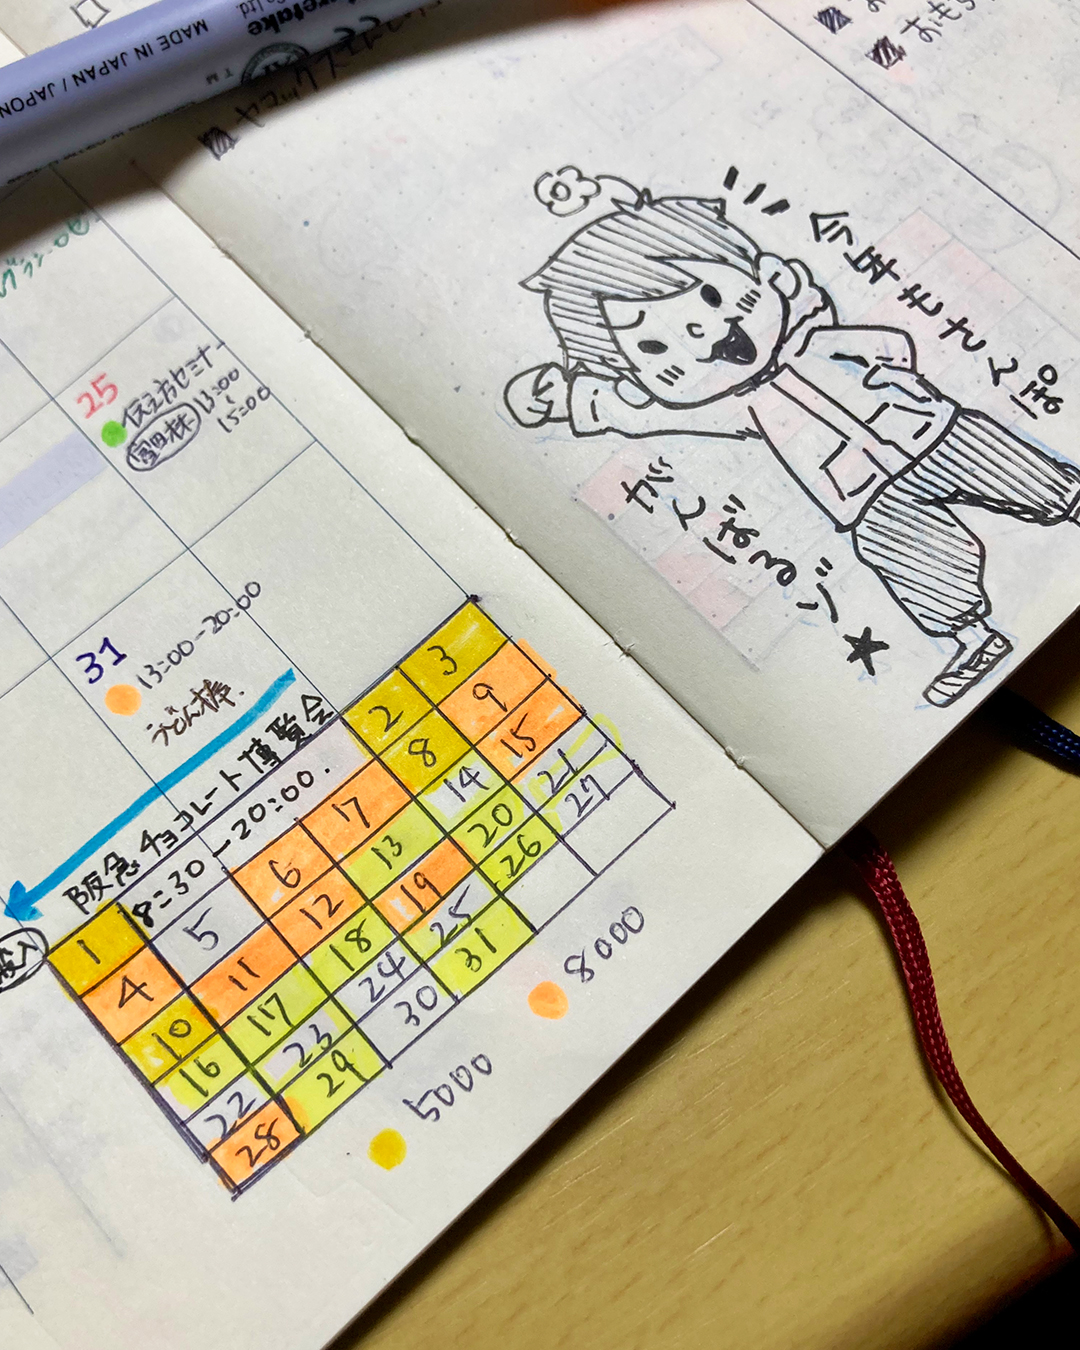 MADE IN JAPAN / JAPON
今年もさんぽ
がんばるゾ★
25
伝え方セミナー
富田林
13:00
15:00
31
13:00-20:00
うどん棒.
阪急チョコレート博覧会
8:30-20:00.
1 2 3
4 5 6 17 8 9
10 11 12 13 14 15
16 17 18 19 20 21
22 23 24 25 26 27
28 29 30 31
8000
5000